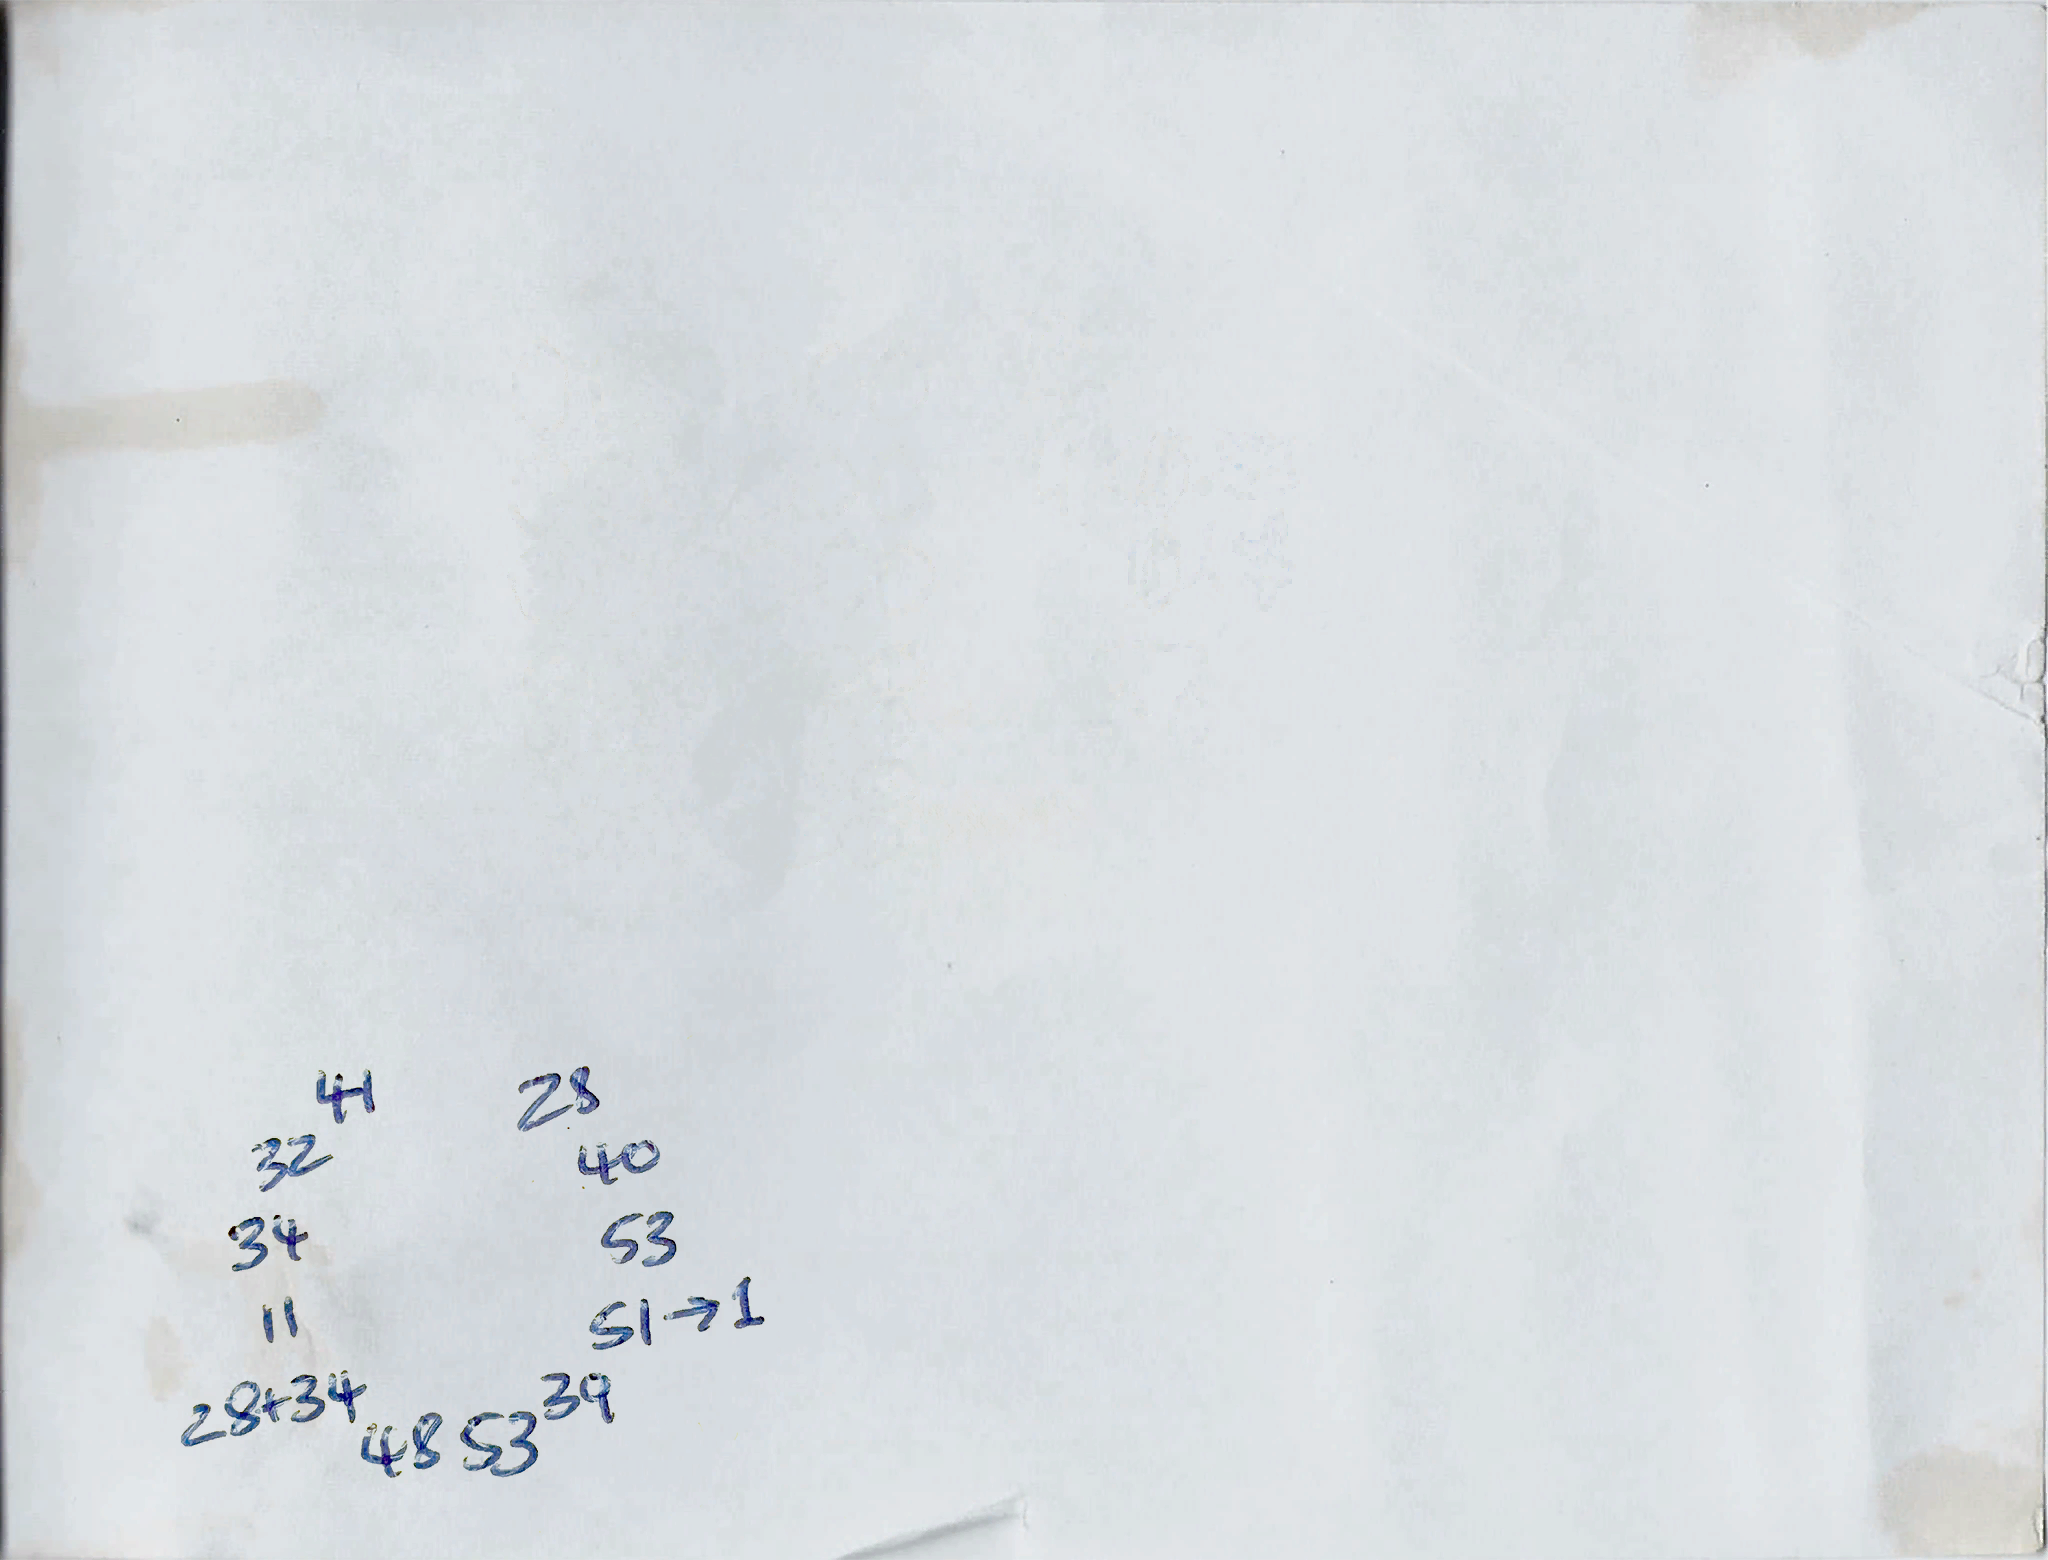 41 28
32 40
34 53
11 51→1
28+34 48 53 39